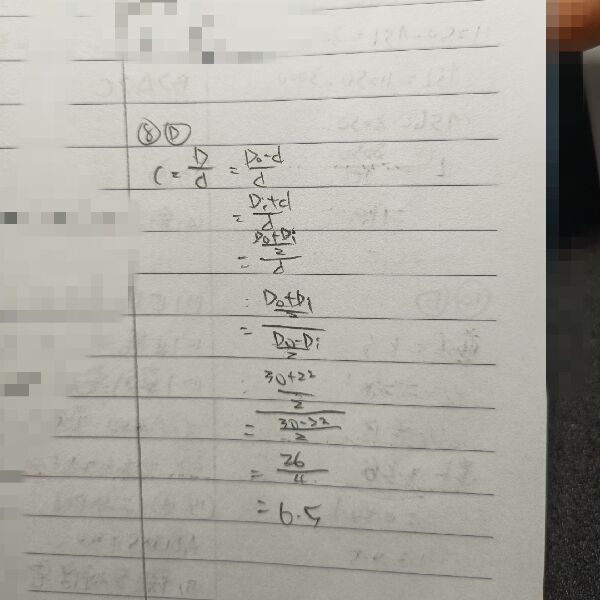 ⑧ Ⓓ
C = D/d = (Do-d)/d
= (Di+d)/d
= ((Do+Di)/2)/d
= ((Do+Di)/2)/((Do-Di)/2)
= ((30+22)/2)/((30-22)/2)
= 26/4
= 6.5